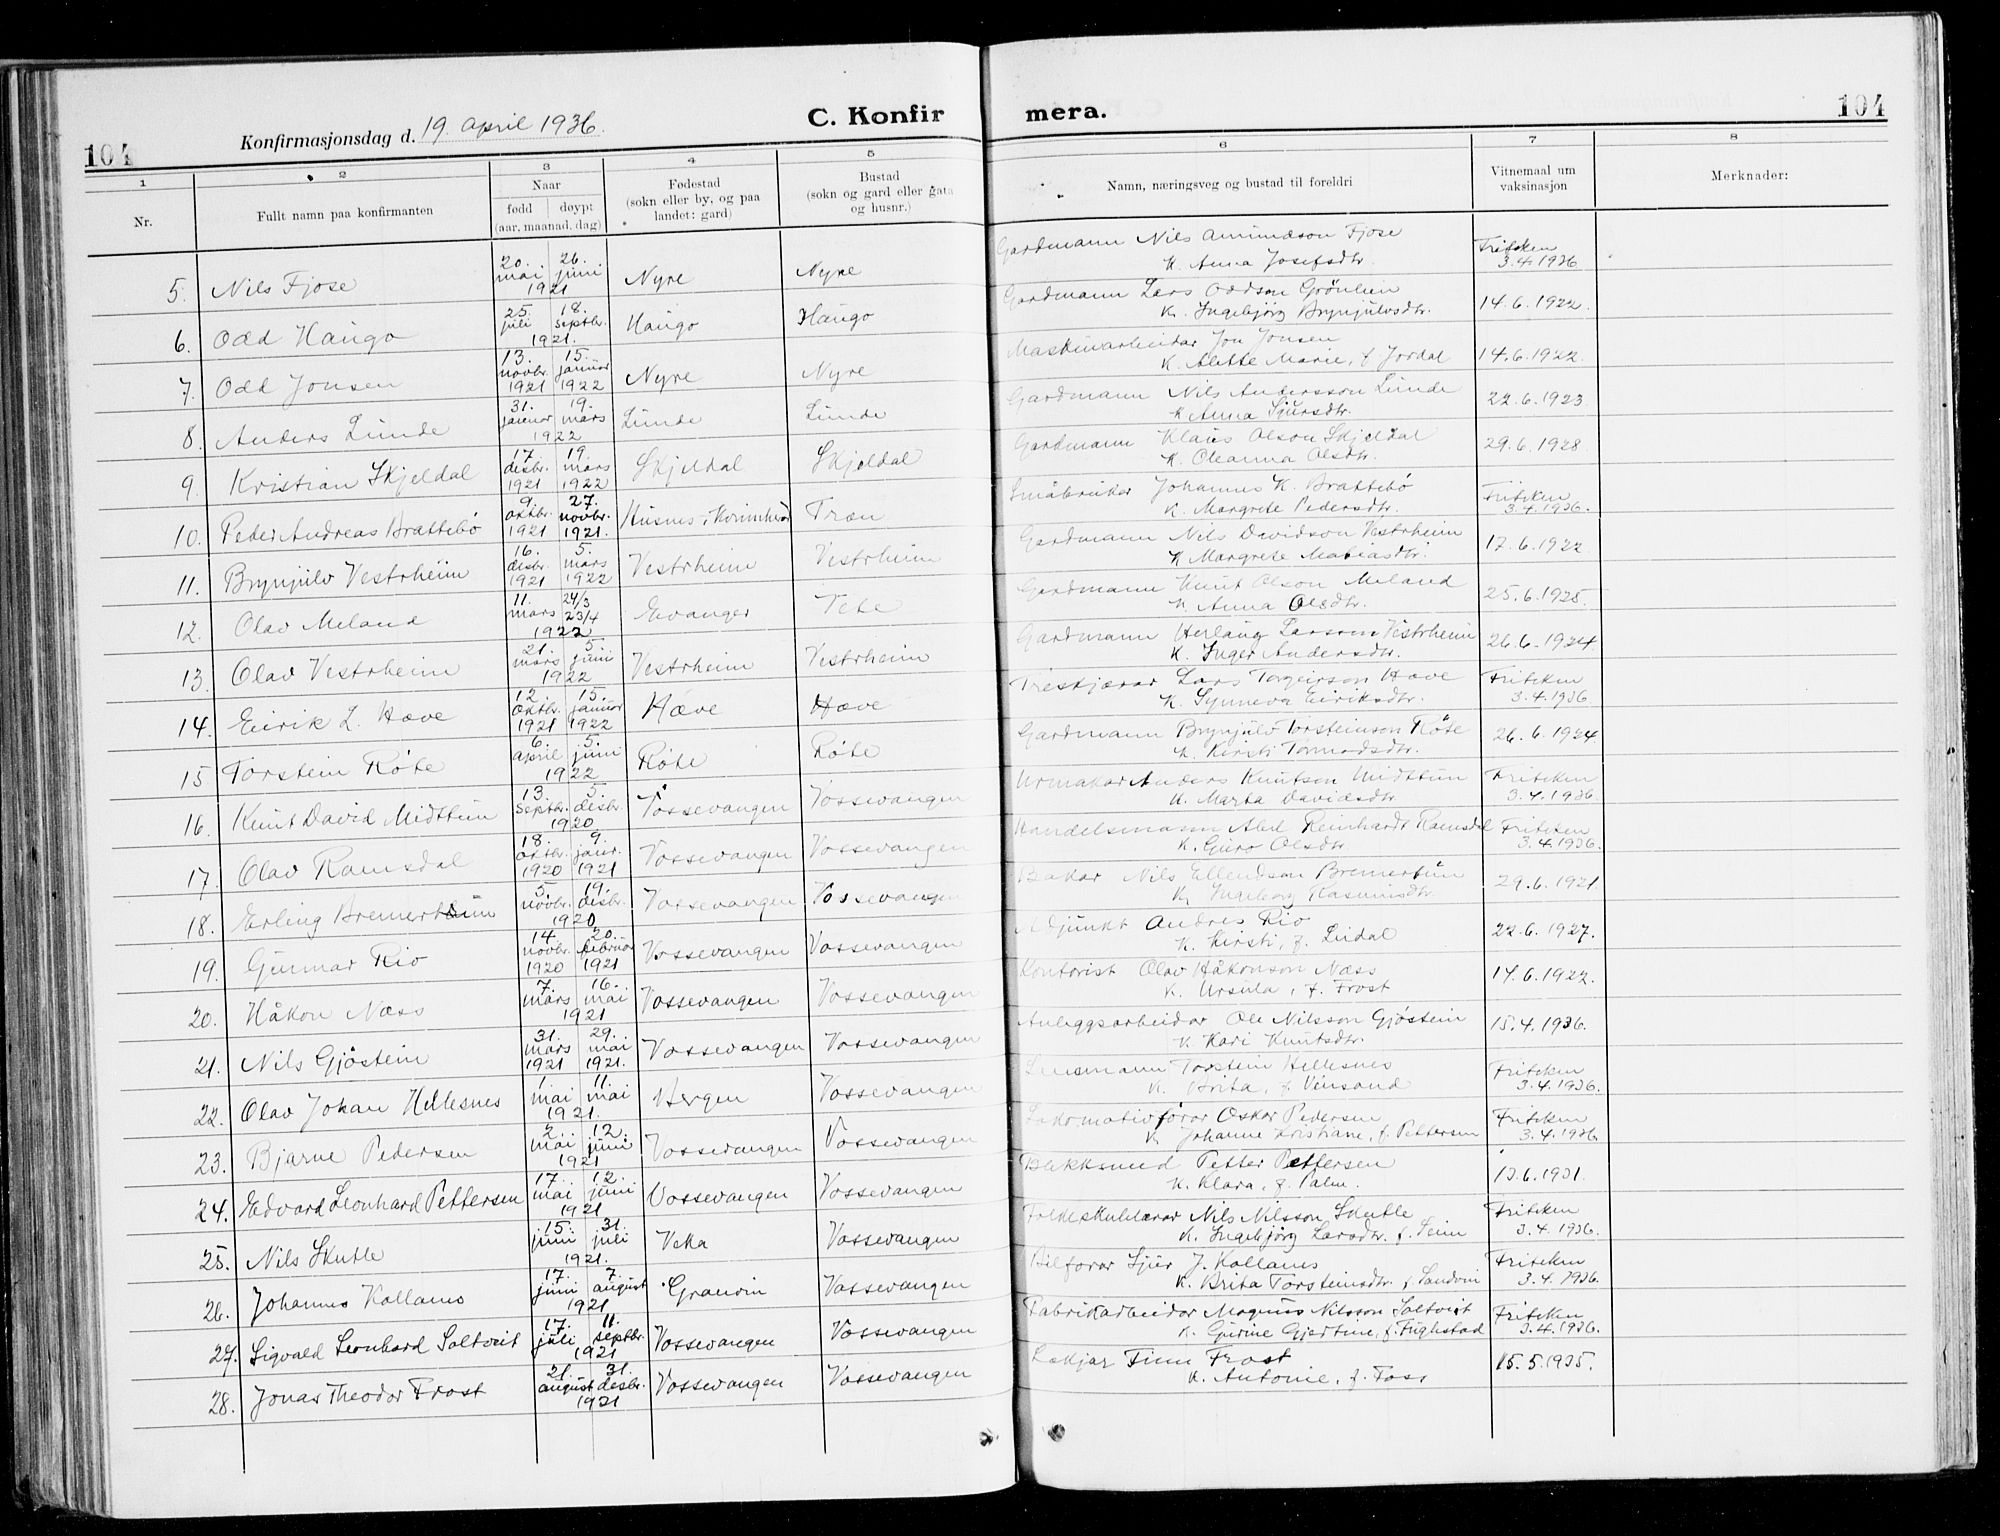 104
Konfirmasjonsdag d. 19. april 1936.
C. Konfir
mera.
104
1 2 3 4 5 6 7 8
Nr.
Fullt namn paa konfirmanten
Naar
fødd døypt
(aar, maanad, dag)
Fødestad
(sokn eller by, og paa
landet: gard)
Bustad
(sokn og gard eller gata
og husnr.)
Namn, næringsveg og bustad til foreldri
Vitnemaal um
vaksinasjon
Merknader:
5. Nils Fjose 20. mai 26. juni 1921 Nyre Nyre Gardmann Nils Amundson Fjose K. Anna Josefsdtr. Friteken 3.4.1936
6. Odd Haugo 25. juli 18. septbr. 1921. Haugo Haugo Gardmann Lars Oddson Grönlien K. Ingebjörg Brynjulvsdtr. 14.6.1922.
7. Odd Jonsen 13. novbr. 1921 15. januar 1922 Nyre Nyre Maskinarbeidar Jon Jonsen K. Alette Marie, f. Jordal 14.6.1922
8. Anders Lunde 31. januar 19. mars 1922 Lunde Lunde Gardmann Nils Andersson Lunde K. Anna Sjursdtr. 22.6.1923
9. Kristian Skjeldal 17. desbr. 1921 19. mars 1922 Skjeldal Skjeldal Gardmann Klaus Olson Skjeldal K. Oleanna Olsdtr. 29.6.1928
10. Peder Andreas Brattebö 9. oktbr. 1921 27. novbr. 1921. Husnes i Kvinnherad Træn Småbrukar Johannes K. Brattebö K. Margrete Pedersdtr. Friteken 3.4.1936.
11. Brynjulv Vestrheim 16. desbr. 1921 5. mars 1922 Vestrheim Vestrheim Gardmann Nils Davidson Vestrheim K. Margrete Matiasdtr. 17.6.1922
12. Olav Meland 11. mars 24/3 23/4 1922 Evanger Tete Gardmann Knut Olson Meland K. Anna Olsdtr. 25.6.1925.
13. Olav Vestrheim 21. mars 5. juni 1922 Vestrheim Vestrheim Gardmann Herlaug Larsson Vestrheim K. Inger Andersdtr. 26.6.1924
14. Eirik L. Hæve 12. oktbr. 1921 15. januar 1922 Hæve Hæve Treskjærar Lars Torgeirson Hæve K. Synneva Eiriksdtr. Friteken 3.4.1936
15 Torstein Röte 6. april 5. juni 1922 Röte Röte Gardmann Brynjulv Torsteinson Röte K. Kirsti Tormodsdtr. 26.6.1924.
16. Knut David Midttun 13. septbr. 5. desbr. 1920 Vossevangen Vossevangen Urmakar Anders Knutson Midttun K. Marta Davidsdtr. Friteken 3.4.1936
17. Olav Ramsdal 18. oktbr. 1920 9. janr. 1921 Vossevangen Vossevangen Handelsmann Abel Reinhardt Ramsdal K. Guro Olsdtr. Friteken 3.4.1936.
18. Erling Bremertun 5. novbr. 19. desbr. 1920 Vossevangen Vossevangen Bakar Nils Ellendson Bremertun K. Ingeborg Rasmusdtr. 29.6.1921.
19. Gunnar Rio 14. novbr. 1920 20. februar 1921 Vossevangen Vossevangen Adjunkt Andres Rio K. Kirsti, f. Lidal 22.6.1927.
20. Håkon Næss 7. mars 16. mai 1921 Vossevangen Vossevangen Kontorist Olav Håkonson Næss K. Ursula, f. Frost 17.6.1922.
21. Nils Gjöstein 31. mars 1921 29. mai 1921. Vossevangen Vossevangen Anleggsarbeidar Ole Nilsson Gjöstein K. Kari Knutsdtr. 15.4.1936.
22. Olav Johan Hellesnes 1. mai 11. mai 1921. Bergen Vossevangen Lensmann Torstein Hellesnes K. Brita, f. Vinsand Friteken 3.4.1936.
23. Bjarne Pedersen 2. mai 12. juni 1921 Vossevangen Vossevangen Lokomotivförar Oskar Pedersen K. Johanne Kristiane, f. Pettersen Friteken 3.4.1936
24. Edvard Leonhard Pettersen 17. mai 12. juni 1921 Vossevangen Vossevangen Blekksmed Petter Pettersen K. Klara, f. Palm. 13.6.1931.
25. Nils Skutle 15. juni 31. juli 1921. Veka Vossevangen Folkeskulelærar Nils Nilsson Skutle K. Ingebjörg Larsdtr. f. Seim Friteken 3.4.1936.
26. Johannes Kollanes 17. juni 7. august 1921 Granvin Vossevangen Bilförar Sjur J. Kollanes K. Brita Torsteinsdtr. f. Sandven Friteken 3.4.1936.
27. Sigvald Leonhard Saltveit 17. juli 11. septbr. 1921 Vossevangen Vossevangen Fabrikarbeidar Magnus Nilsson Saltveit K. Gurine Gjertine, f. Fuglestad Friteken 3.4.1936.
28. Jonas Theodor Frost 21. august 31. desbr. 1921 Vossevangen Vossevangen Finn Frost K. Antonie, f. Foss 15.5.1935.